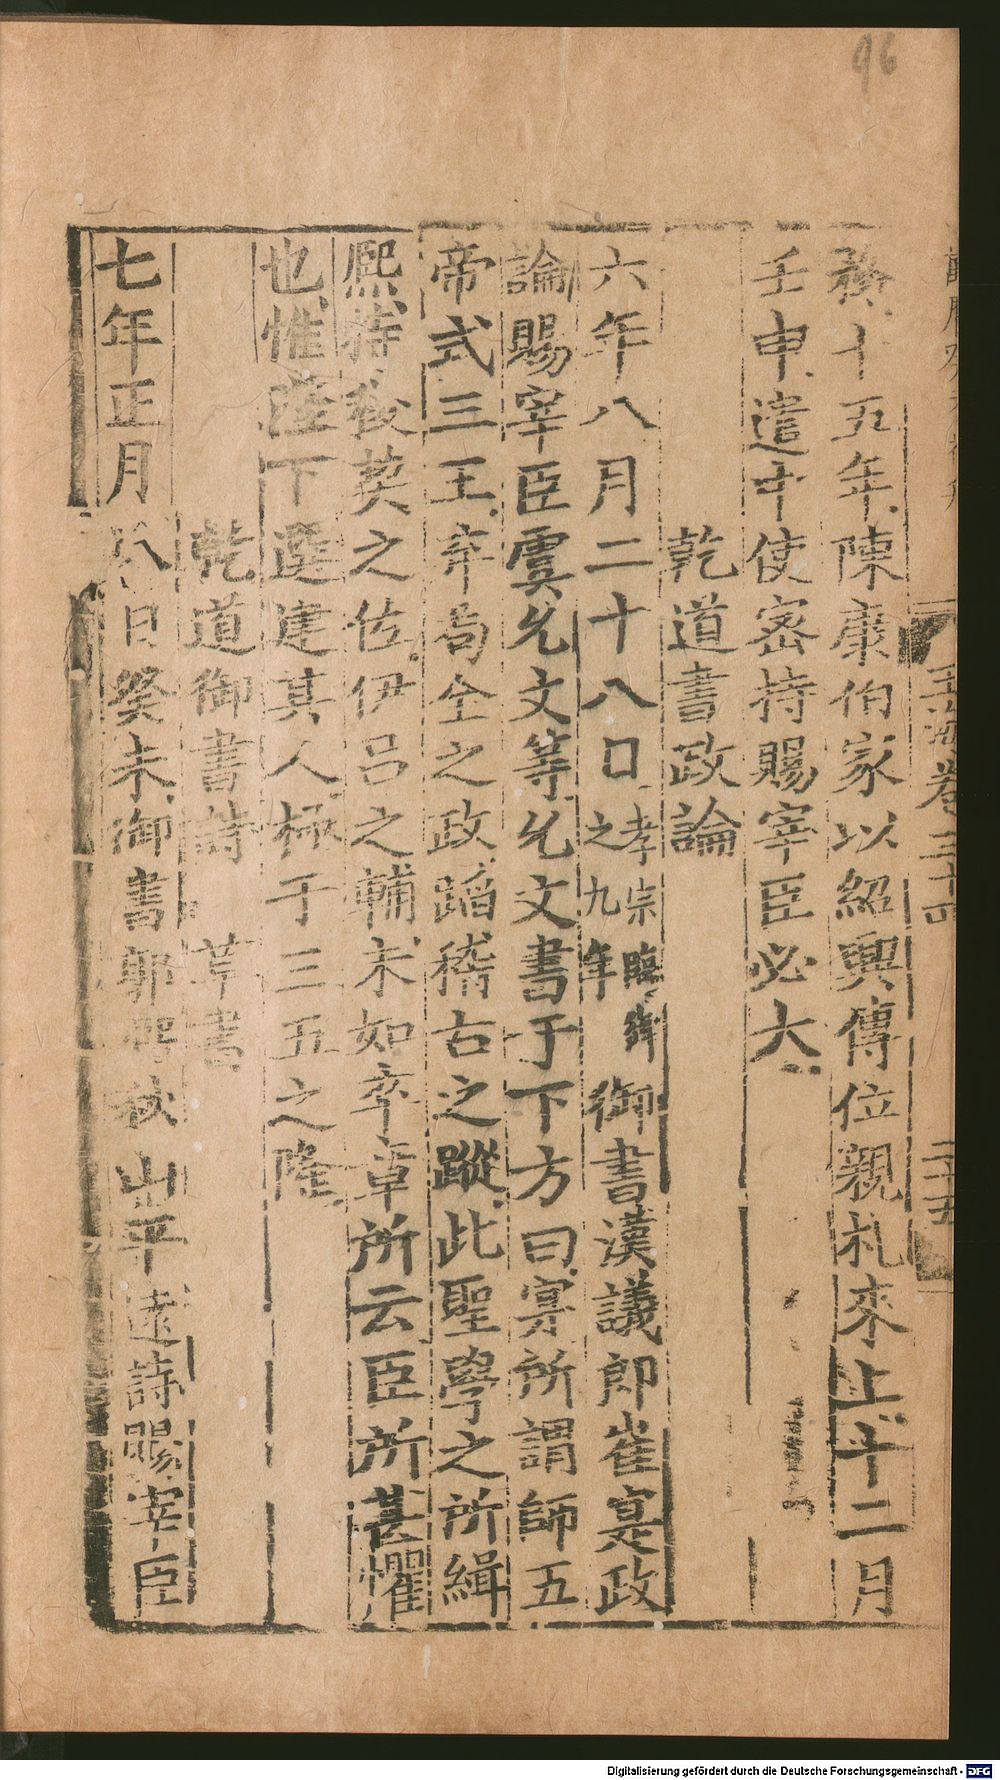 96
玉海卷三十四 二十五
癸十五年陳康伯家以紹興傳位親札來上十二月
壬申遣中使密持賜宰臣必大
乾道書政論
六年八月二十八日孝宗臨御之九年御書漢議郎崔寔政
論賜宰臣虞允文等允文書于下方曰寔所謂師五
帝式三王弃苟全之政蹈稽古之蹤此聖學之所緝
熙待後英之佐伊呂之輔未如卒章所云臣所甚懼
也惟陛下選建其人極于三五之隆
乾道御書詩 草書
七年正月八日癸未御書郭熙秋山平遠詩賜宰臣
Digitalisierung gefördert durch die Deutsche Forschungsgemeinschaft - DFG